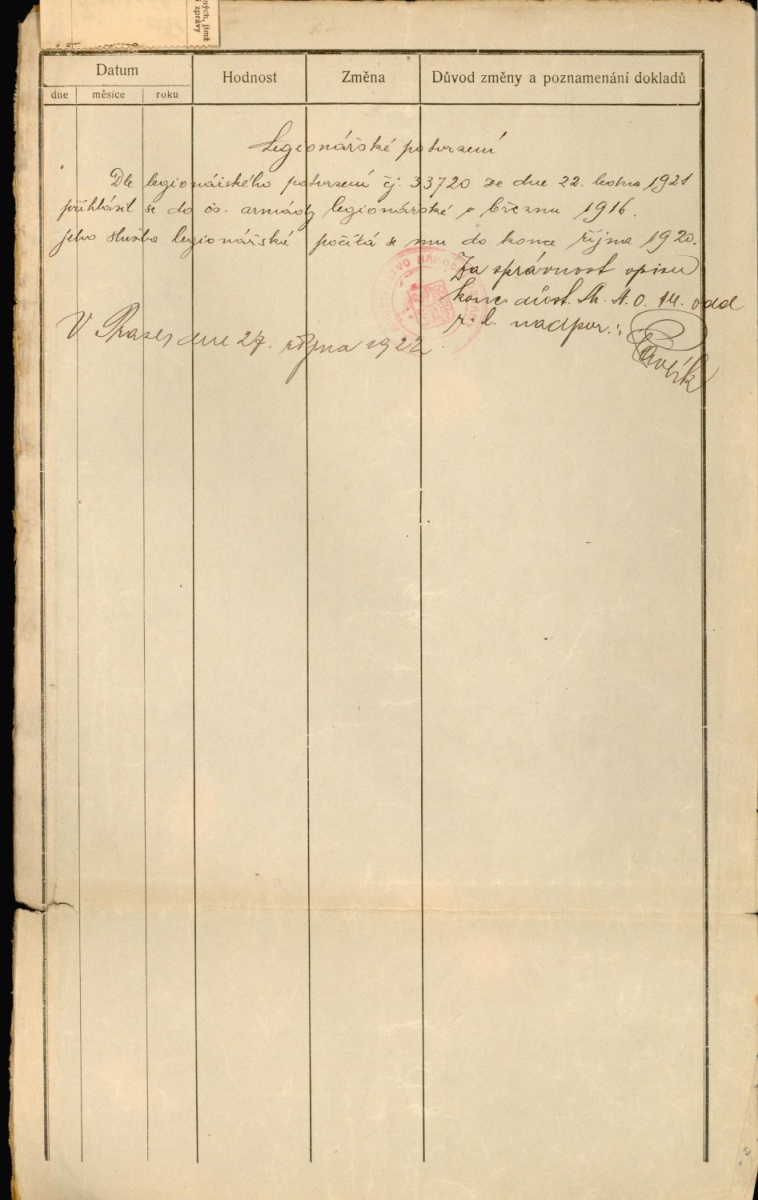 ných, jimž
zprávy
Datum
Hodnost
Změna
Důvod změny a poznamenání dokladů
dne
měsíce
roku
Legionářské potvrzení
Dle legionářského potvrzení čj. 33720 ze dne 22. ledna 1921
přihlásil se do čs. armády legionářské v březnu 1916.
Jeho služba legionářské počítá se mu do konce října 1920.
Za správnost opisu
konc. důst. M. N. O. 14. odd
r. l. nadpor.:
V Praze, dne 27. října 1922.